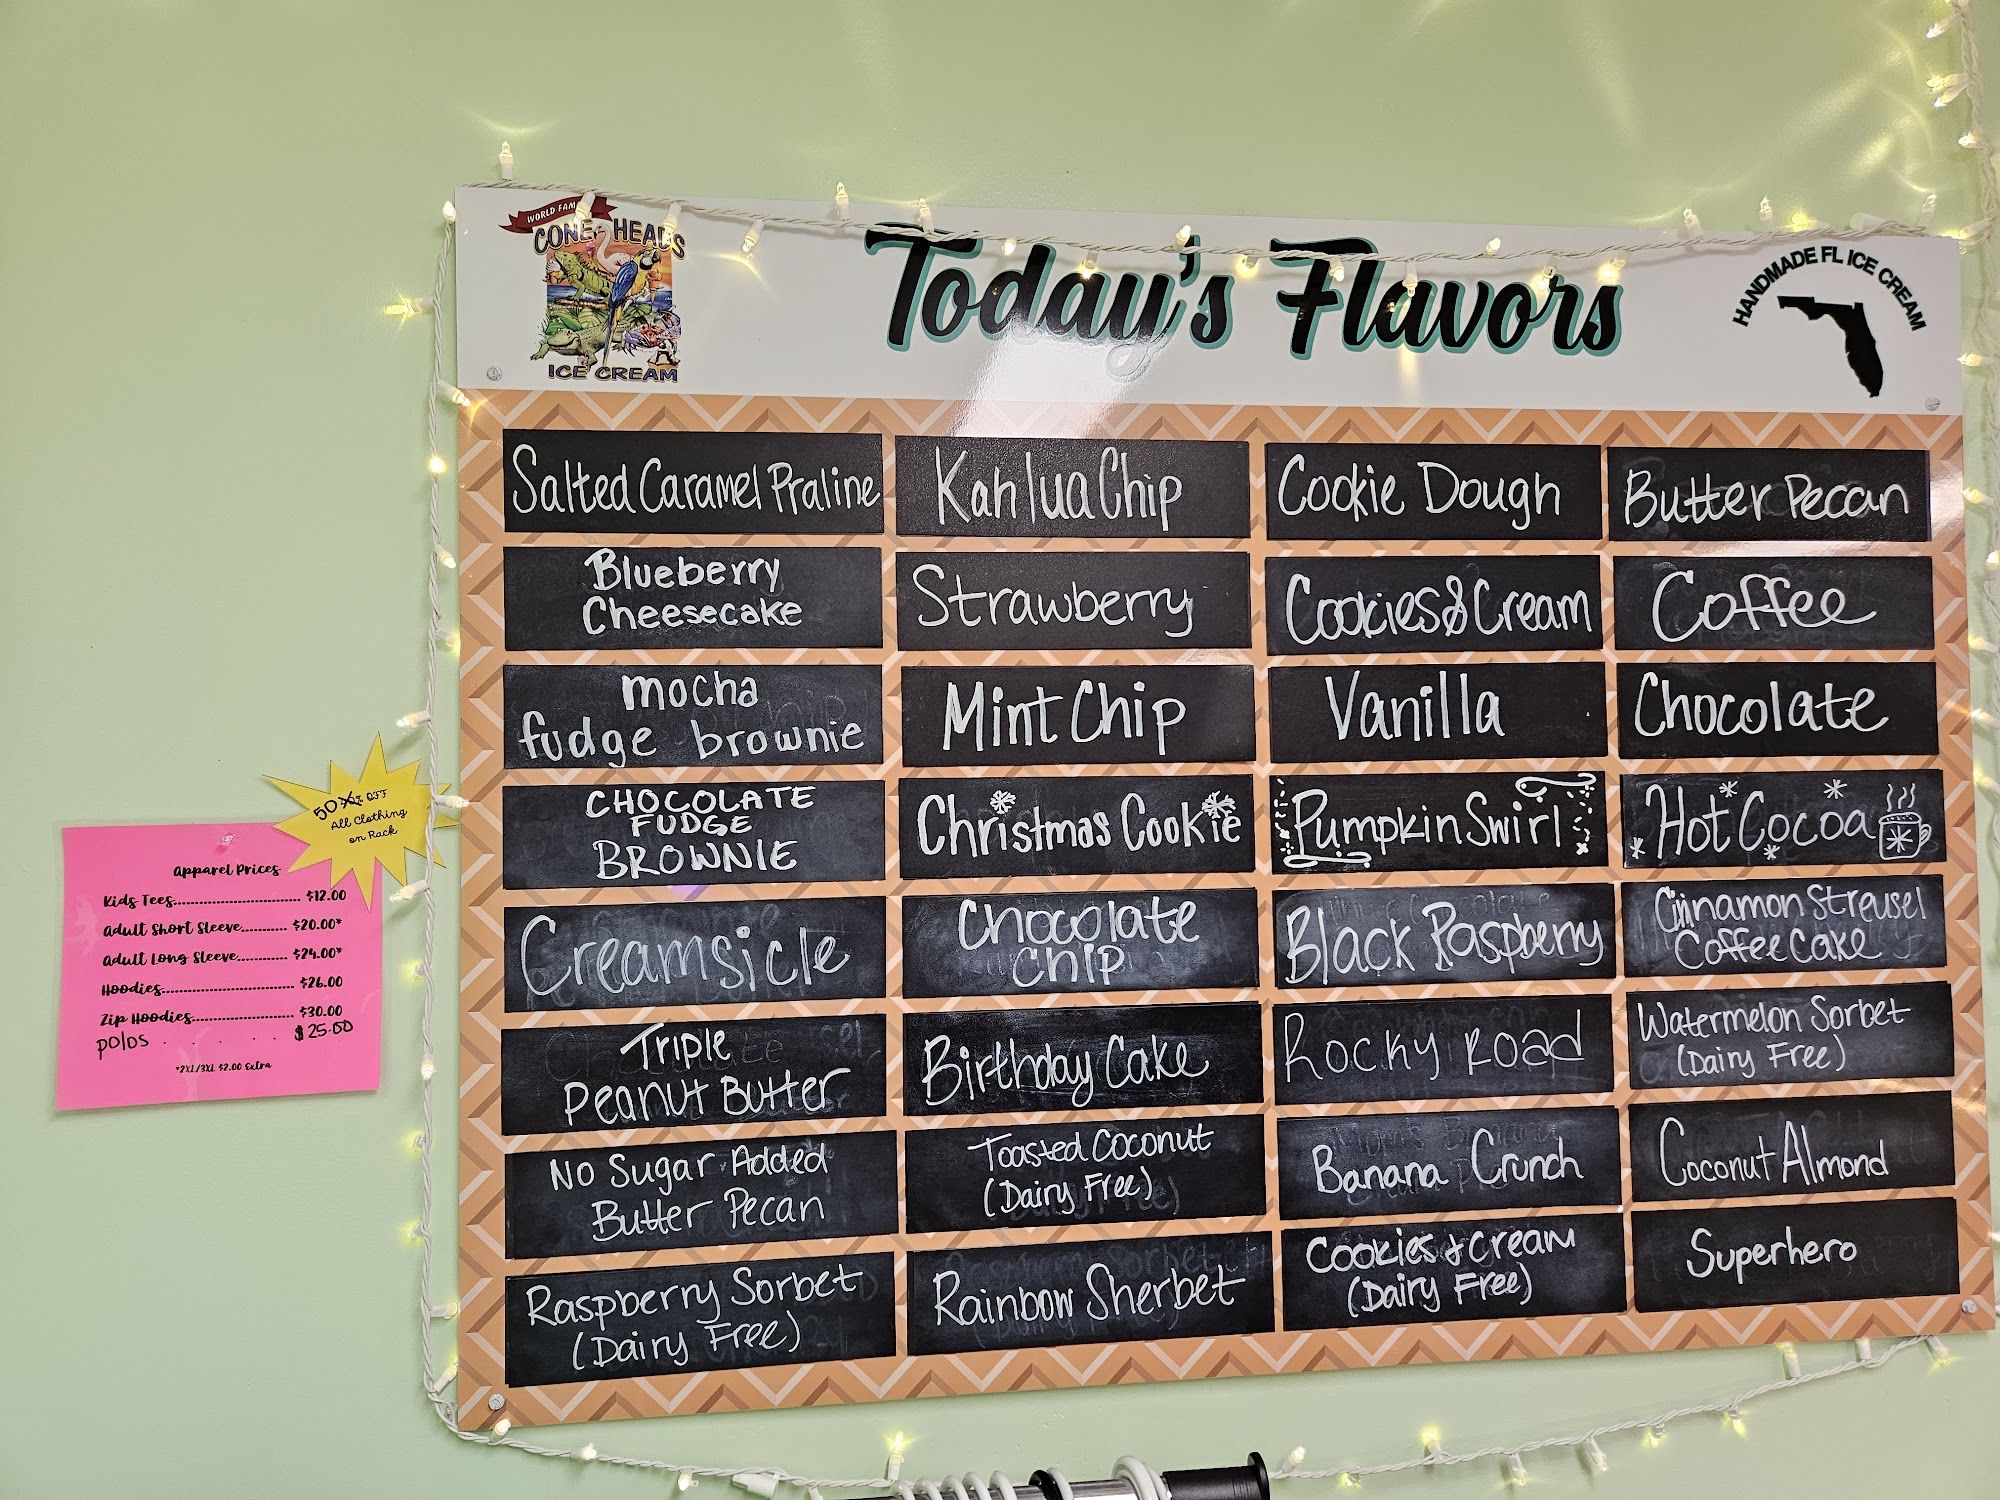 WORLD FAM
CONE HEADS
ICE CREAM
Today's Flavors
HANDMADE FL ICE CREAM
Salted Caramel Praline
Kahlua Chip
Cookie Dough
Butter Pecan
Blueberry
Cheesecake
Strawberry
Cookies & Cream
Coffee
mocha
fudge brownie
Mint Chip
Vanilla
Chocolate
CHOCOLATE
FUDGE
BROWNIE
Christmas Cookie
Pumpkin Swirl
Hot Cocoa
Creamsicle
Chocolate
Chip
Black Raspberry
Cinnamon Streusel
Coffee Cake
Triple
Peanut Butter
Birthday Cake
Rocky Road
Watermelon Sorbet
(Dairy Free)
No Sugar Added
Butter Pecan
Toasted Coconut
(Dairy Free)
Banana Crunch
Coconut Almond
Raspberry Sorbet
(Dairy Free)
Rainbow Sherbet
Cookies & Cream
(Dairy Free)
Superhero
50% OFF
All Clothing
on Rack
Apparel Prices
Kids Tees.............................. $12.00
Adult Short Sleeve........... $20.00*
Adult Long Sleeve............ $24.00*
Hoodies................................ $26.00
Zip Hoodies......................... $30.00
polos . . . . . $25.00
*2XL/3XL $2.00 Extra